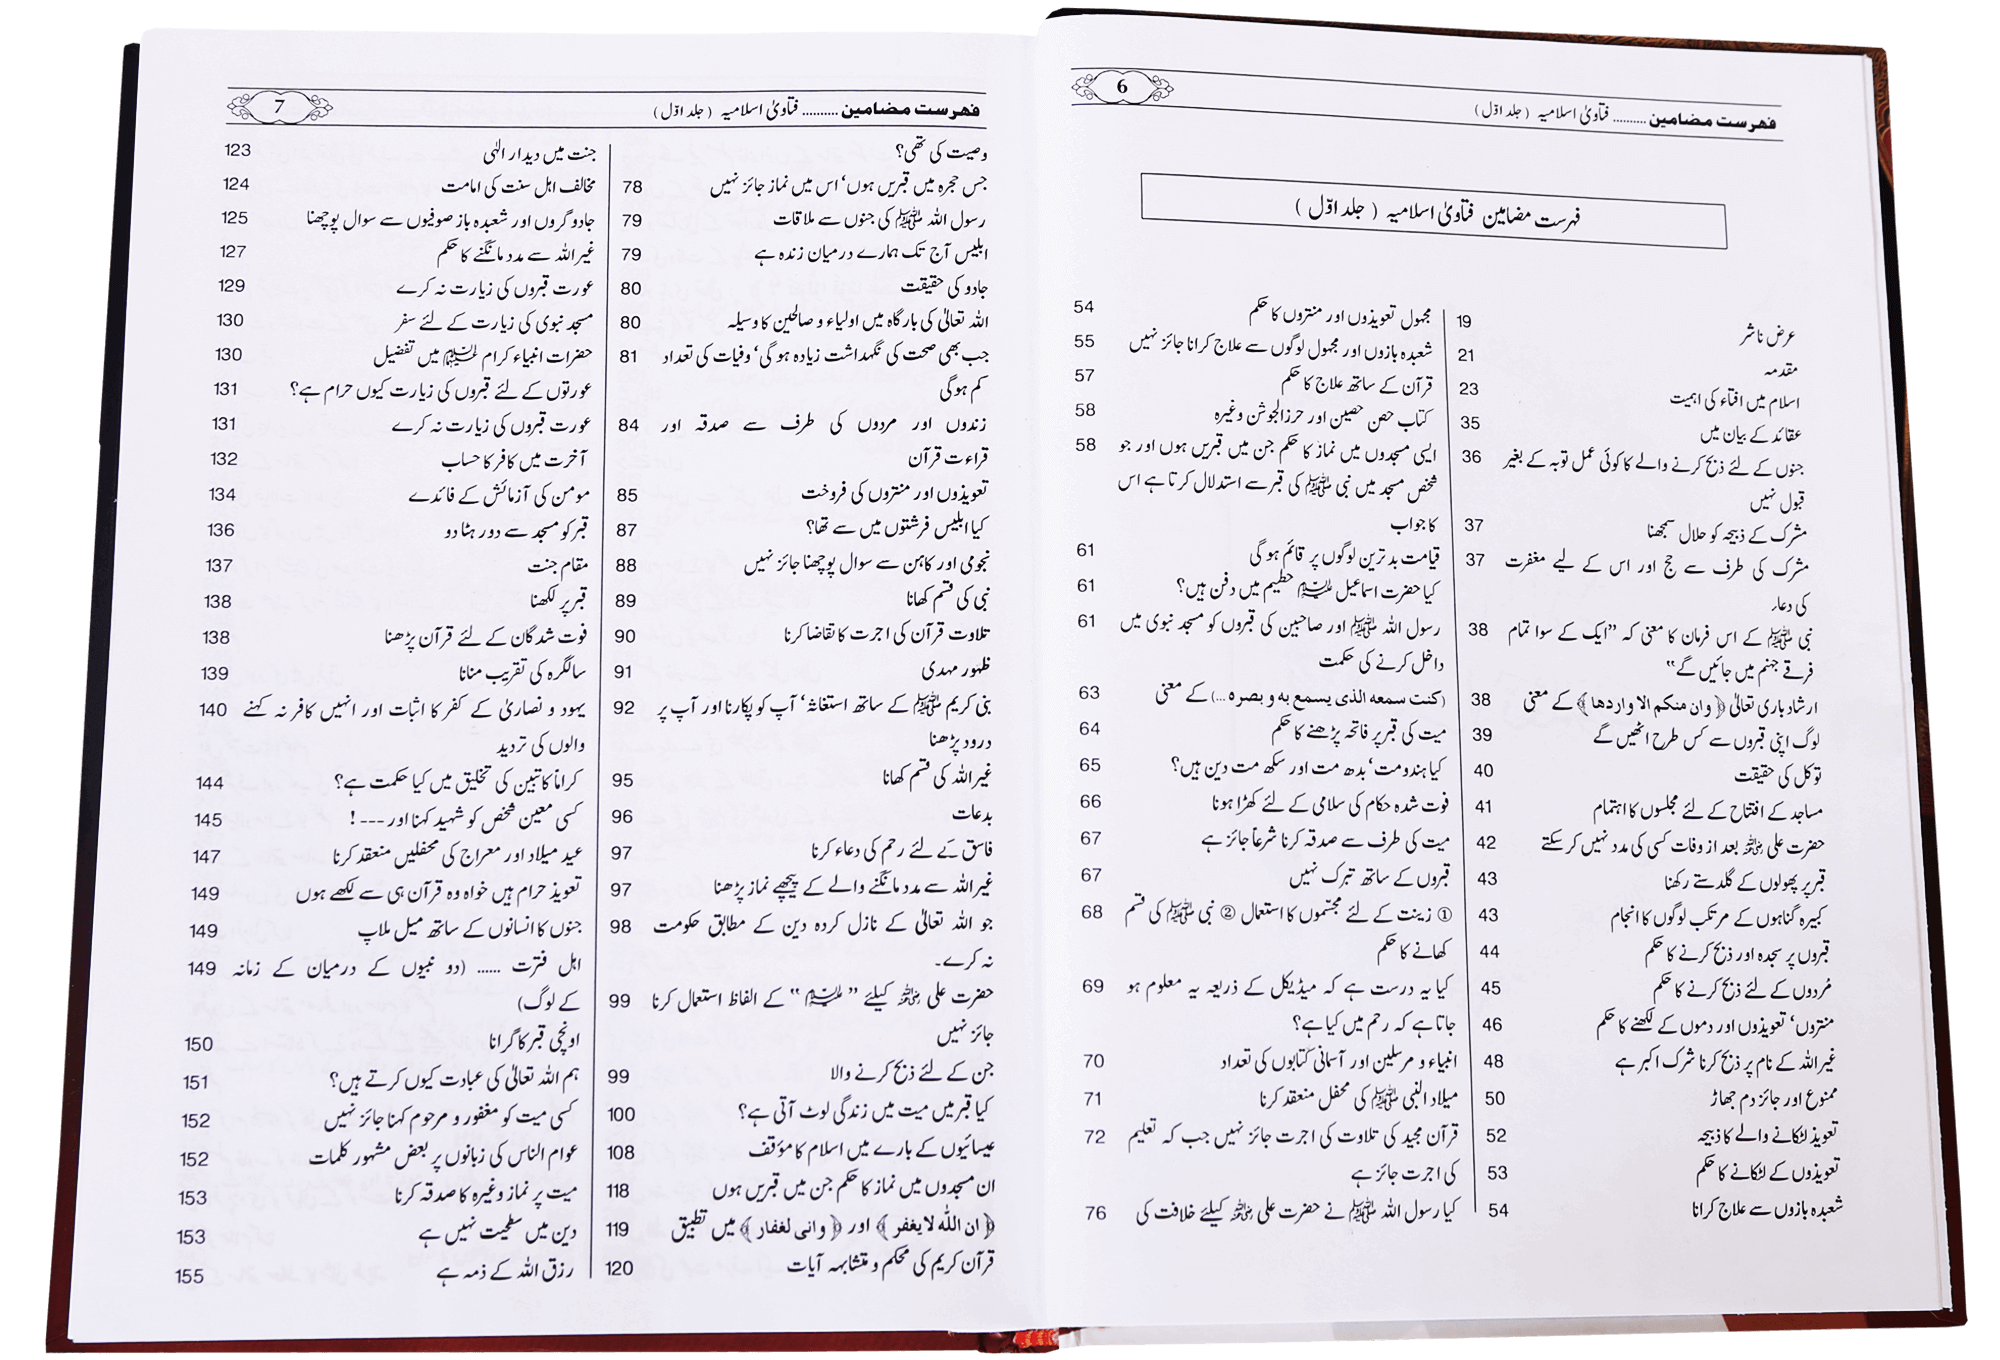 فہرست مضامین .......... فتاویٰ اسلامیہ (جلد اوّل) 6
فہرست مضامین فتاویٰ اسلامیہ (جلد اوّل)
عرض ناشر 19
مقدمہ 21
اسلام میں افتاء کی اہمیت 23
عقائد کے بیان میں 35
جنوں کے لئے ذبح کرنے والے کا کوئی عمل توبہ کے بغیر 36
قبول نہیں
مشرک کے ذبیحہ کو حلال سمجھنا 37
مشرک کی طرف سے حج اور اس کے لیے مغفرت 37
کی دعاء
نبی ﷺ کے اس فرمان کا معنی کہ ”ایک کے سوا تمام 38
فرقے جہنم میں جائیں گے“
ارشاد باری تعالیٰ ﴿وان منکم الا واردھا﴾ کے معنی 38
لوگ اپنی قبروں سے کس طرح اٹھیں گے 39
توکل کی حقیقت 40
مساجد کے افتتاح کے لئے مجلسوں کا اہتمام 41
حضرت علی رضی اللہ عنہ بعد از وفات کسی کی مدد نہیں کر سکتے 42
قبر پر پھولوں کے گلدستے رکھنا 43
کبیرہ گناہوں کے مرتکب لوگوں کا انجام 43
قبروں پر سجدہ اور ذبح کرنے کا حکم 44
مُردوں کے لئے ذبح کرنے کا حکم 45
منتروں‘ تعویذوں اور دموں کے لکھنے کا حکم 46
غیر اللہ کے نام پر ذبح کرنا شرک اکبر ہے 48
ممنوع اور جائز دم جھاڑ 50
تعویذ لٹکانے والے کا ذبیحہ 52
تعویذوں کے لٹکانے کا حکم 53
شعبدہ بازوں سے علاج کرانا 54
مجہول تعویذوں اور منتروں کا حکم 54
شعبدہ بازوں اور مجہول لوگوں سے علاج کرانا جائز نہیں 55
قرآن کے ساتھ علاج کا حکم 57
کتاب حصن حصین اور حرزالجوشن وغیرہ 58
ایسی مسجدوں میں نماز کا حکم جن میں قبریں ہوں اور جو 58
شخص مسجد میں نبی ﷺ کی قبر سے استدلال کرتا ہے اس
کا جواب
قیامت بد ترین لوگوں پر قائم ہو گی 61
کیا حضرت اسماعیل علیہ السلام حطیم میں دفن ہیں؟ 61
رسول اللہ ﷺ اور صاحبین کی قبروں کو مسجد نبوی میں 61
داخل کرنے کی حکمت
(کنت سمعہ الذی یسمع بہ و بصرہ ...) کے معنی 63
میت کی قبر پر فاتحہ پڑھنے کا حکم 64
کیا ہندومت‘ بدھ مت اور سکھ مت دین ہیں؟ 65
فوت شدہ حکام کی سلامی کے لئے کھڑا ہونا 66
میت کی طرف سے صدقہ کرنا شرعاً جائز ہے 67
قبروں کے ساتھ تبرک نہیں 67
① زینت کے لئے مجسّموں کا استعمال ② نبی ﷺ کی قسم 68
کھانے کا حکم
کیا یہ درست ہے کہ میڈیکل کے ذریعہ یہ معلوم ہو 69
جاتا ہے کہ رحم میں کیا ہے؟
انبیاء و مرسلین اور آسمانی کتابوں کی تعداد 70
میلاد النبی ﷺ کی محفل منعقد کرنا 71
قرآن مجید کی تلاوت کی اجرت جائز نہیں جب کہ تعلیم 72
کی اجرت جائز ہے
کیا رسول اللہ ﷺ نے حضرت علی رضی اللہ عنہ کیلئے خلافت کی 76
فہرست مضامین .......... فتاویٰ اسلامیہ (جلد اوّل) 7
وصیت کی تھی؟
جس حجرہ میں قبریں ہوں‘ اس میں نماز جائز نہیں 78
رسول اللہ ﷺ کی جنوں سے ملاقات 79
ابلیس آج تک ہمارے درمیان زندہ ہے 79
جادو کی حقیقت 80
اللہ تعالیٰ کی بارگاہ میں اولیاء و صالحین کا وسیلہ 80
جب بھی صحت کی نگہداشت زیادہ ہو گی‘ وفیات کی تعداد 81
کم ہوگی
زندوں اور مردوں کی طرف سے صدقہ اور 84
قراءت قرآن
تعویذوں اور منتروں کی فروخت 85
کیا ابلیس فرشتوں میں سے تھا؟ 87
نجومی اور کاہن سے سوال پوچھنا جائز نہیں 88
نبی کی قسم کھانا 89
تلاوت قرآن کی اجرت کا تقاضا کرنا 90
ظہور مہدی 91
بنی کریم ﷺ کے ساتھ استغاثہ‘ آپ کو پکارنا اور آپ پر 92
درود پڑھنا
غیر اللہ کی قسم کھانا 95
بدعات 96
فاسق کے لئے رحم کی دعاء کرنا 97
غیر اللہ سے مدد مانگنے والے کے پیچھے نماز پڑھنا 97
جو اللہ تعالیٰ کے نازل کردہ دین کے مطابق حکومت 98
نہ کرے۔
حضرت علی رضی اللہ عنہ کیلئے ” علیہ السلام “ کے الفاظ استعمال کرنا 99
جائز نہیں
جن کے لئے ذبح کرنے والا 99
کیا قبر میں میت میں زندگی لوٹ آتی ہے؟ 100
عیسائیوں کے بارے میں اسلام کا مؤقف 108
ان مسجدوں میں نماز کا حکم جن میں قبریں ہوں 118
﴿ان اللہ لا یغفر﴾ اور ﴿وانی لغفار﴾ میں تطبیق 119
قرآن کریم کی محکم و متشابہہ آیات 120
جنت میں دیدار الٰہی 123
مخالف اہل سنت کی امامت 124
جادو گروں اور شعبدہ باز صوفیوں سے سوال پوچھنا 125
غیر اللہ سے مدد مانگنے کا حکم 127
عورت قبروں کی زیارت نہ کرے 129
مسجد نبوی کی زیارت کے لئے سفر 130
حضرات انبیاء کرام علیہم السلام میں تفضیل 130
عورتوں کے لئے قبروں کی زیارت کیوں حرام ہے؟ 131
عورت قبروں کی زیارت نہ کرے 131
آخرت میں کافر کا حساب 132
مومن کی آزمائش کے فائدے 134
قبر کو مسجد سے دور ہٹا دو 136
مقام جنت 137
قبر پر لکھنا 138
فوت شدگان کے لئے قرآن پڑھنا 138
سالگرہ کی تقریب منانا 139
یہود و نصاریٰ کے کفر کا اثبات اور انہیں کافر نہ کہنے 140
والوں کی تردید
کراماً کاتبین کی تخلیق میں کیا حکمت ہے؟ 144
کسی معین شخص کو شہید کہنا اور ---! 145
عید میلاد اور معراج کی محفلیں منعقد کرنا 147
تعویذ حرام ہیں خواہ وہ قرآن ہی سے لکھے ہوں 149
جنوں کا انسانوں کے ساتھ میل ملاپ 149
اہل فترت ...... (دو نبیوں کے درمیان کے زمانہ 149
کے لوگ)
اونچی قبر کا گرانا 150
ہم اللہ تعالیٰ کی عبادت کیوں کرتے ہیں؟ 151
کسی میت کو مغفور و مرحوم کہنا جائز نہیں 152
عوام الناس کی زبانوں پر بعض مشہور کلمات 152
میت پر نماز وغیرہ کا صدقہ کرنا 153
دین میں سطحیت نہیں ہے 153
رزق اللہ کے ذمہ ہے 155